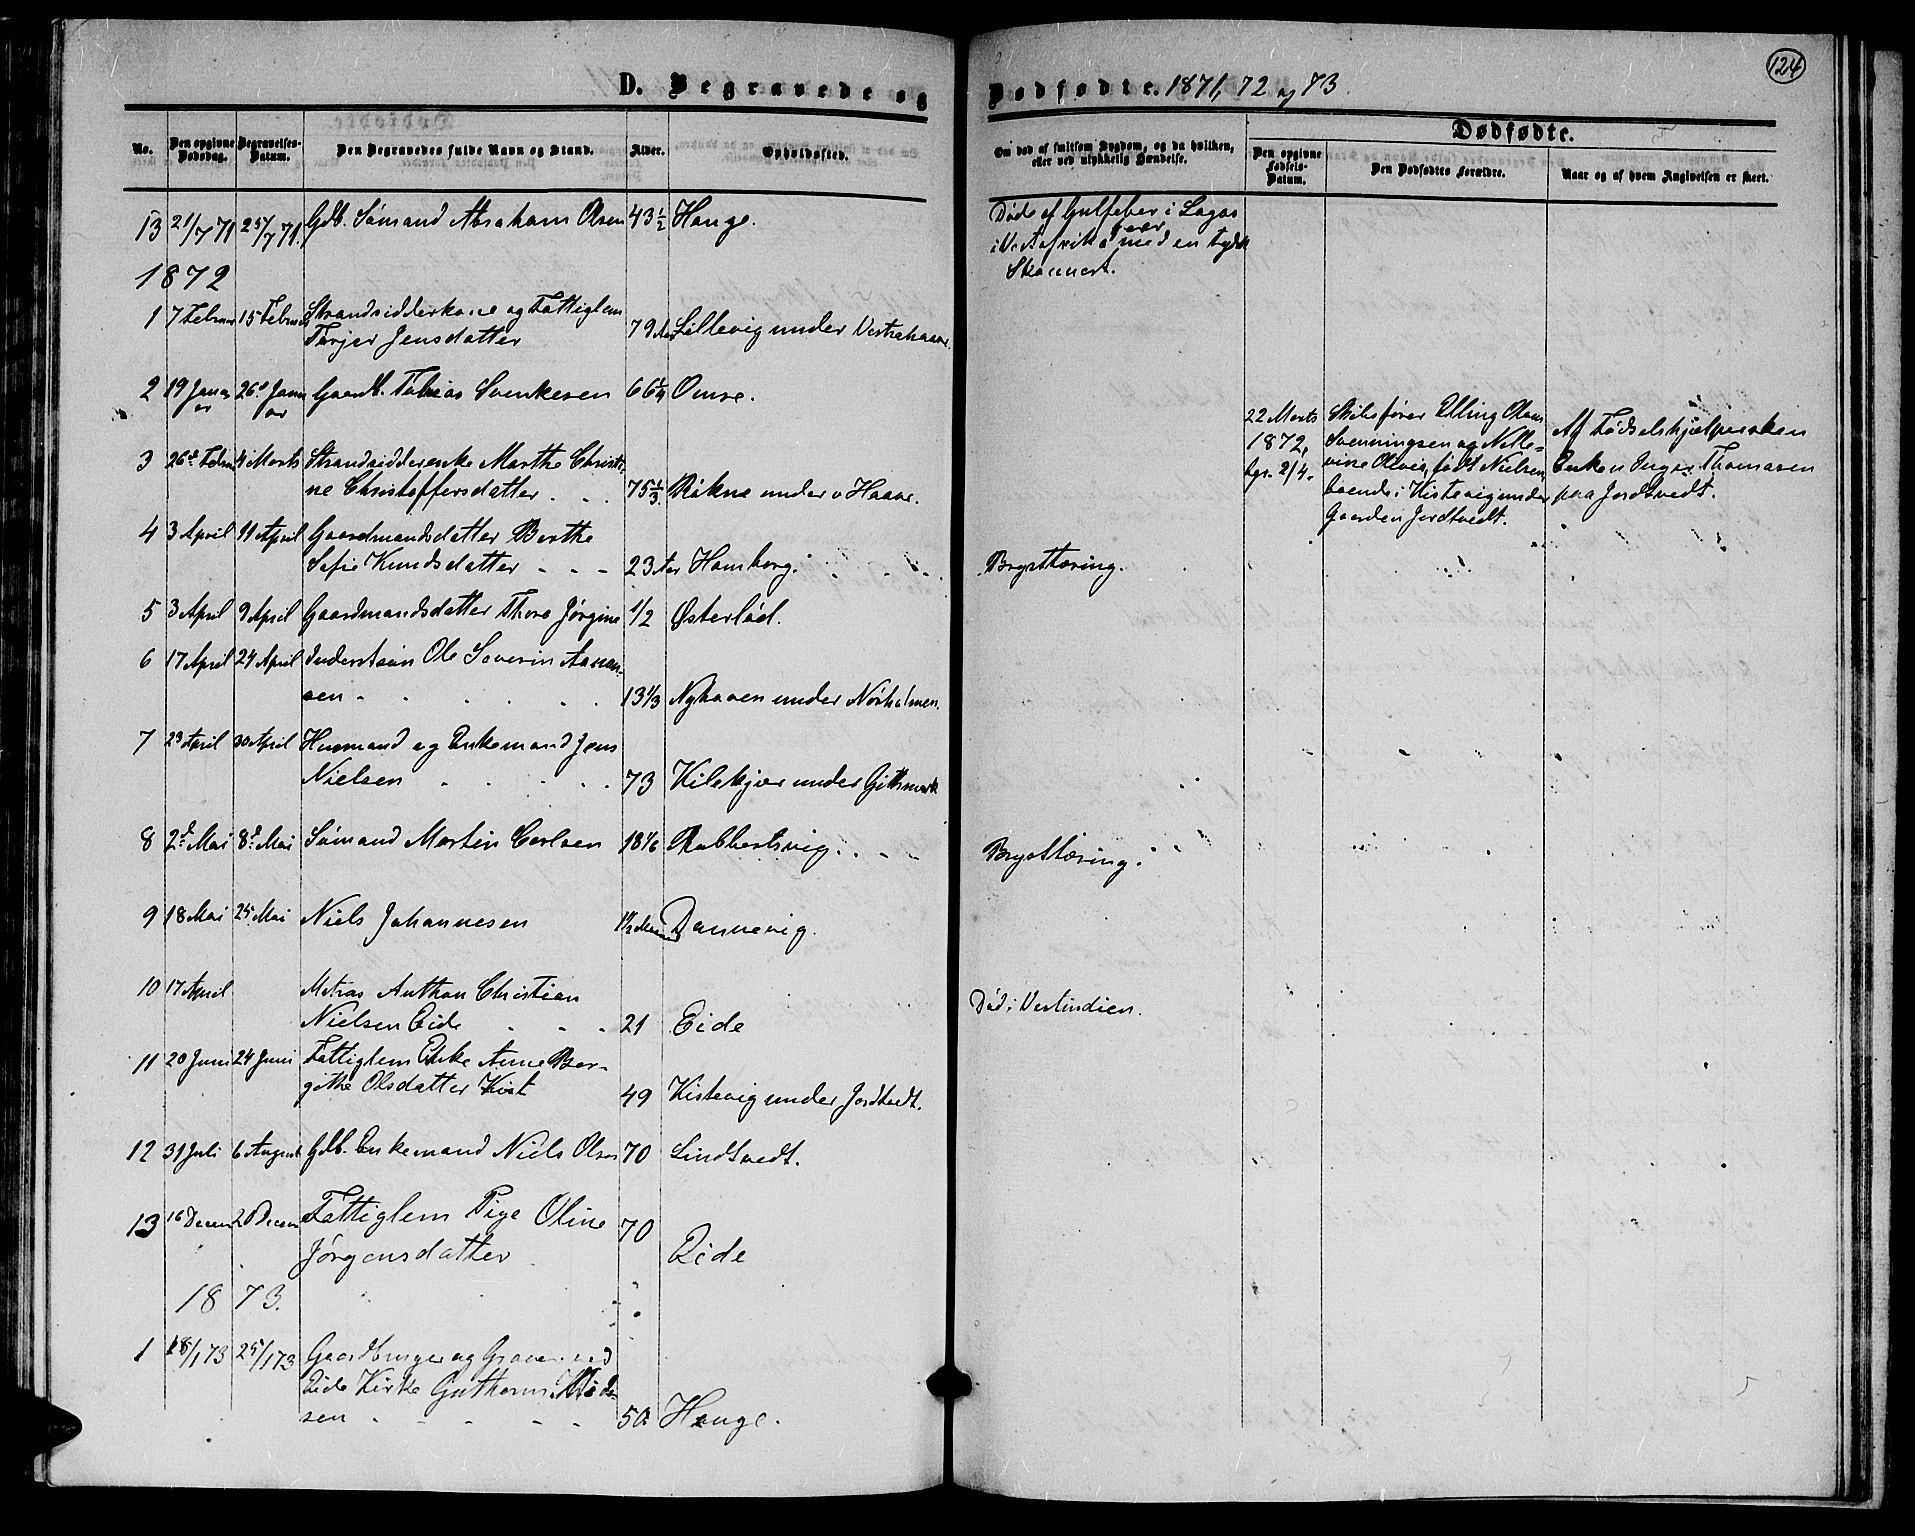 124
D. Begravede og
Dødfødte. 1871, 72 og 73.
No.
Den opgivne Dødsdag.
Begravelses-Datum.
Den Begravedes fulde Navn og Stand.
Alder.
Opholdssted.
Om død af smitsom Sygdom, og da hvilken, eller ved ulykkelig Hændelse.
Dødfødte.
Den opgivne Fødsels-Datum.
Den Dødfødtes Forældre.
Naar og af hvem Angivelsen er skeet.
13 21/7 71 25/7 71. Gdb. Sømand Abraham Olsen 43 1/2 Hauge.
Døde af Gulfeber i Lagos
i Vestafrika med en tydsk
Skonnert.
1872
1 7 Februar 15 Februar Strandsidderkone og Fattiglem
Terjer Jensdatter 79 Aar Lillevig under Vestrehaave.
2 19 Januar 26 Januar Gaardb. Tobias Svenkesen 66 1/4 Omre.
22 Marts
1872,
bgr. 2/4.
Skibsfører Elling Olaus
Svenningsen og Nille-
vine Olivia, født Nielsen,
boende i Kistevig under
Gaarden Jordtvedt.
Af Fødselshjælpersken
Enken Inger Thomasen
paa Jordtvedt.
3 26d Febru 4 Marts Strandsidderenke Marthe Christi-
ne Christoffersdatter . . 75 1/3 Røkne under v Haave.
4 3 April 11 April Gaardmandsdatter Berthe
Sofie Knudsdatter - - - 23 Aar Homborg.
Brysttæring.
5 3 April 9 April Gaardmandsdatter Thora Jørgine 1/2 Østerlød.
6 17 April 24 April Inderstsøn Ole Severin Aanon-
sen - . . . . . 13 1/3 Nyhaven under Nørholmen.
7 23 April 30 April Husmand og Enkemand Jens
Nielsen . . . . . 73 Kilekjær under Gitmark
8 2d Mai 8d Mai Sømand Martin Carlsen 18 1/6 Rabbersvig.
Brysttæring.
9 18 Mai 25 Mai Niels Johannesen 1 1/2 Maaned Dannevig.
10 17 April Matros Anthon Christian
Nielsen Eide . - - 21 Eide
Død i Vestindien.
11 20 Juni 24 Juni Fattiglem Enke Anne Ber-
githe Olsdatter Kist 49 Kistevig under Jordtvedt.
12 31 Juli 6 August Gdb. Enkemand Niels Olsen 70 Lindtvedt.
13 16 Decem 20 Decem Fattiglem Pige Oline
Jørgensdatter 70 Eide
1873.
1 18/1 73 25/1 73 Gaardbruger og Graver ved
Eide Kirke Guthorm Nils-
sen - - - - - 50 Hauge.